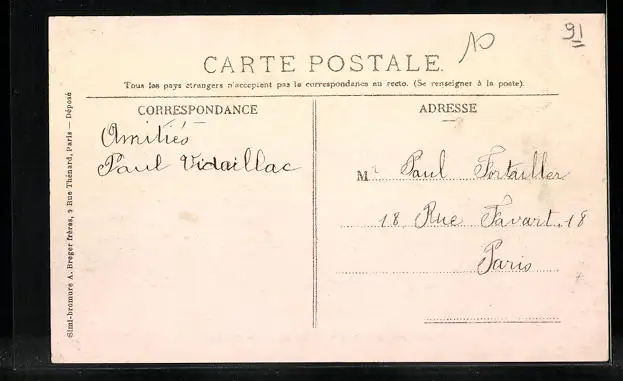 91
CARTE POSTALE.
Tous les pays étrangers n'acceptent pas la correspondance au recto. (Se renseigner à la poste).
CORRESPONDANCE
Amitiés
Paul Vidaillac
ADRESSE
Mr Paul Fortailler
18 Rue Favart. 18
Paris
Simi-bromure A. Breger frères, 9 Rue Thénard, Paris — Déposé